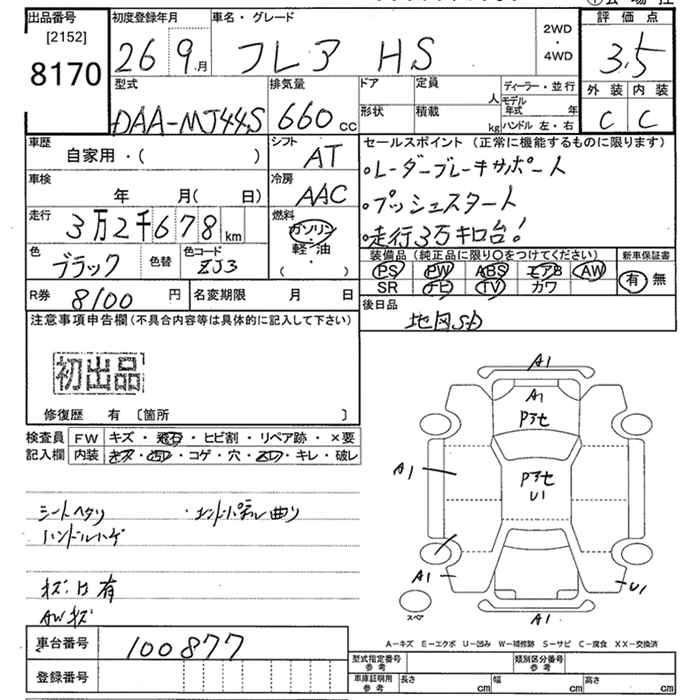 出品番号 [2152] 8170
初度登録年月 26 9月
車名・グレード フレア HS
2WD・4WD
評価点 3.5
外装 C 内装 C
型式 DAA-MJ44S
排気量 660cc
ドア 形状
定員 人 積載 kg
ディーラー・並行
モデル年式 年
ハンドル 左・右
車歴 自家用・( )
シフト AT
車検 年 月( 日)
冷房 AAC
走行 3万2千678km
燃料 ガソリン・軽・油・( )
色 ブラック 色替 色コード ZJ3
R券 8100円 名変期限 月 日
セールスポイント(正常に機能するものに限ります)
・レーダーブレーキサポート
・プッシュスタート
・走行3万キロ台!
装備品(純正品に限り○をつけてください) 新車保証書
PS PW ABS エアB AW 有 無
SR ナビ TV カワ
後日品 地図SD
注意事項申告欄(不具合内容等は具体的に記入して下さい)
初出品
修復歴 有 [箇所 ]
検査員 FW キズ・飛石・ヒビ割・リペア跡・×要
記入欄 内装 キズ・コゲ・穴・キレ・破レ
シートヘタリ ・エンドパネル曲リ
ハンドルハゲ
キズ 有
AWキズ
A1
A1
Pアセ
Pアセ
U1
A1
A1
U1
スペア
A1
A-キズ E-エクボ U-凹み W-補修跡 S-サビ C-腐食 XX-交換済
車台番号 100877
登録番号
型式指定番号 参考 類別区分番号 参考
車庫証明用 参考 長さ cm 幅 cm 高さ cm